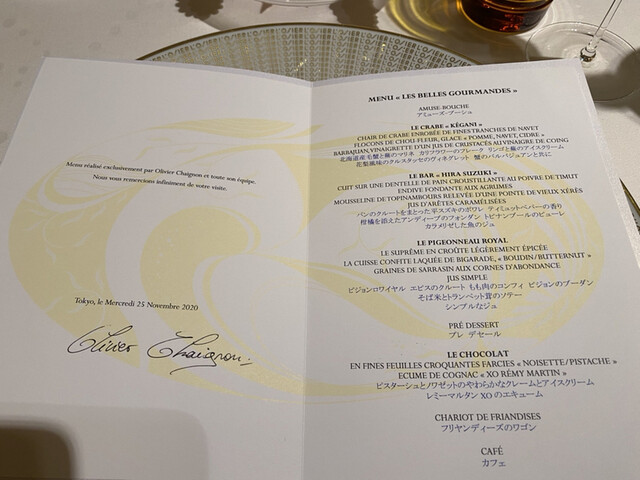 L'OSIER
Menu réalisé exclusivement par Olivier Chaignon et toute son équipe.
Nous vous remercions infiniment de votre visite.
Tokyo, le Mercredi 25 Novembre 2020
Olivier Chaignon
MENU « LES BELLES GOURMANDES »
AMUSE-BOUCHE
アミューズ・ブーシュ
LE CRABE « KÉGANI »
CHAIR DE CRABE ENROBÉE DE FINES TRANCHES DE NAVET
FLOCONS DE CHOU-FLEUR, GLACE « POMME, NAVET, CIDRE »
BARBAJUAN, VINAIGRETTE D'UN JUS DE CRUSTACÉS AU VINAIGRE DE COING
北海道産毛蟹と蕪のマリネ カリフラワーのフレーク リンゴと蕪のアイスクリーム
花梨風味のクルスタッセのヴィネグレット 蟹のバルバジュアンと共に
LE BAR « HIRA SUZUKI »
CUIT SUR UNE DENTELLE DE PAIN CROUSTILLANTE AU POIVRE DE TIMUT
ENDIVE FONDANTE AUX AGRUMES
MOUSSELINE DE TOPINAMBOURS RELEVÉE D'UNE POINTE DE VIEUX XÉRÈS
JUS D'ARÊTES CARAMÉLISÉES
パンのクルートをまとった平スズキのポワレ ティミュットペパーの香り
柑橘を添えたアンディーブのフォンダン トピナンブールのピューレ
カラメリゼした魚のジュ
LE PIGEONNEAU ROYAL
LE SUPRÊME EN CROÛTE LÉGÈREMENT ÉPICÉE
LA CUISSE CONFITE LAQUÉE DE BIGARADE, « BOUDIN/BUTTERNUT »
GRAINES DE SARRASIN AUX CORNES D'ABONDANCE
JUS SIMPLE
ピジョンロワイヤル エピスのクルート もも肉のコンフィ ピジョンのブーダン
そば米とトランペット茸のソテー
シンプルなジュ
PRÉ DESSERT
プレ デセール
LE CHOCOLAT
EN FINES FEUILLES CROQUANTES FARCIES « NOISETTE/PISTACHE »
ECUME DE COGNAC « XO RÉMY MARTIN »
ピスターシュとノワゼットのやわらかなクレームとアイスクリーム
レミーマルタン XO のエキューム
CHARIOT DE FRIANDISES
フリヤンディーズのワゴン
CAFÉ
カフェ